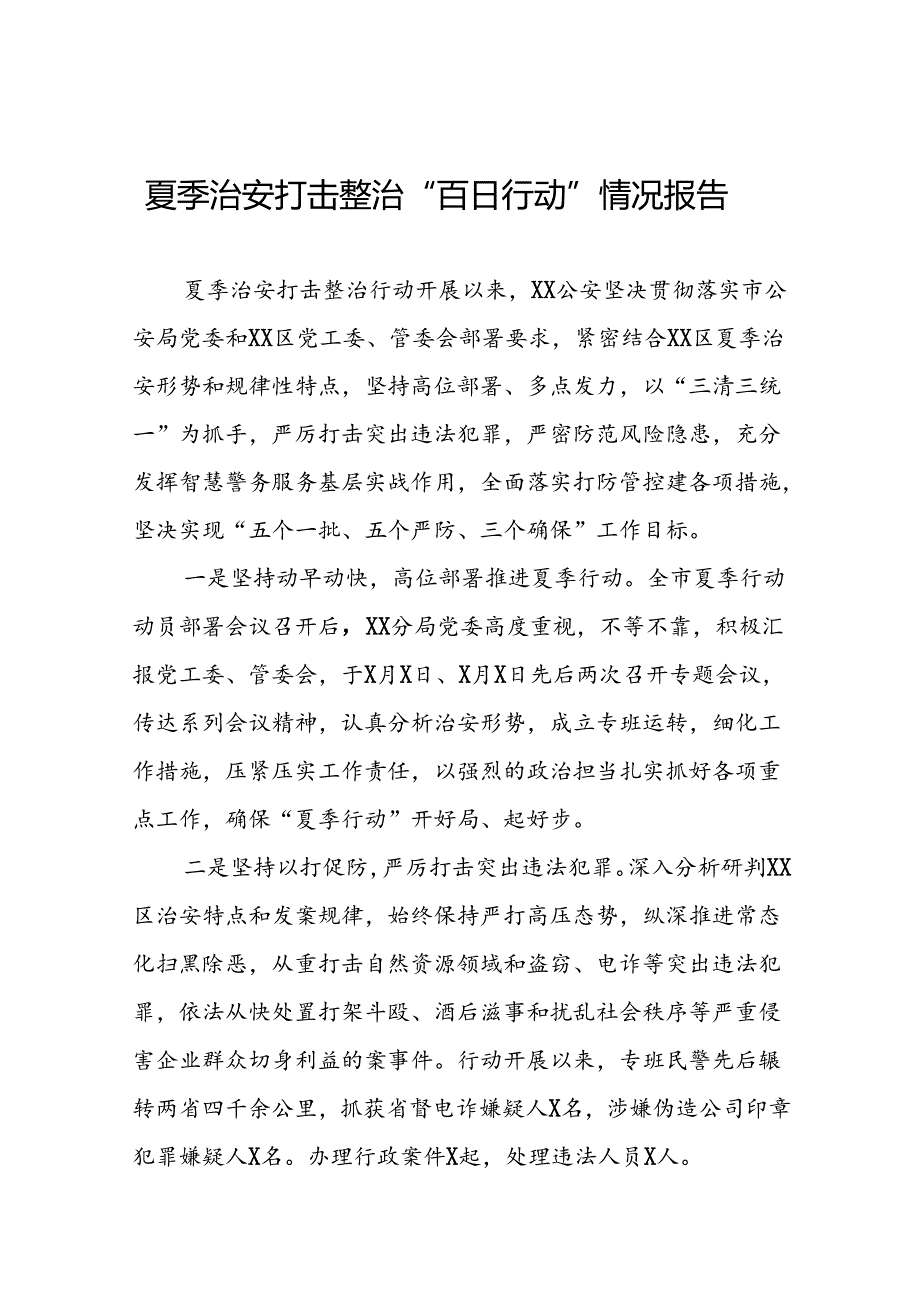 夏季治安打击整治“百日行动”情况报告
夏季治安打击整治行动开展以来，XX公安坚决贯彻落实市公
安局党委和XX区党工委、管委会部署要求，紧密结合XX区夏季治
安形势和规律性特点，坚持高位部署、多点发力，以“三清三统
一”为抓手，严厉打击突出违法犯罪，严密防范风险隐患，充分
发挥智慧警务服务基层实战作用，全面落实打防管控建各项措施，
坚决实现“五个一批、五个严防、三个确保”工作目标。
一是坚持动早动快，高位部署推进夏季行动。全市夏季行动
动员部署会议召开后，XX分局党委高度重视，不等不靠，积极汇
报党工委、管委会，于X月X日、X月X日先后两次召开专题会议，
传达系列会议精神，认真分析治安形势，成立专班运转，细化工
作措施，压紧压实工作责任，以强烈的政治担当扎实抓好各项重
点工作，确保“夏季行动”开好局、起好步。
二是坚持以打促防，严厉打击突出违法犯罪。深入分析研判XX
区治安特点和发案规律，始终保持严打高压态势，纵深推进常态
化扫黑除恶，从重打击自然资源领域和盗窃、电诈等突出违法犯
罪，依法从快处置打架斗殴、酒后滋事和扰乱社会秩序等严重侵
害企业群众切身利益的案事件。行动开展以来，专班民警先后辗
转两省四千余公里，抓获省督电诈嫌疑人X名，涉嫌伪造公司印章
犯罪嫌疑人X名。办理行政案件X起，处理违法人员X人。